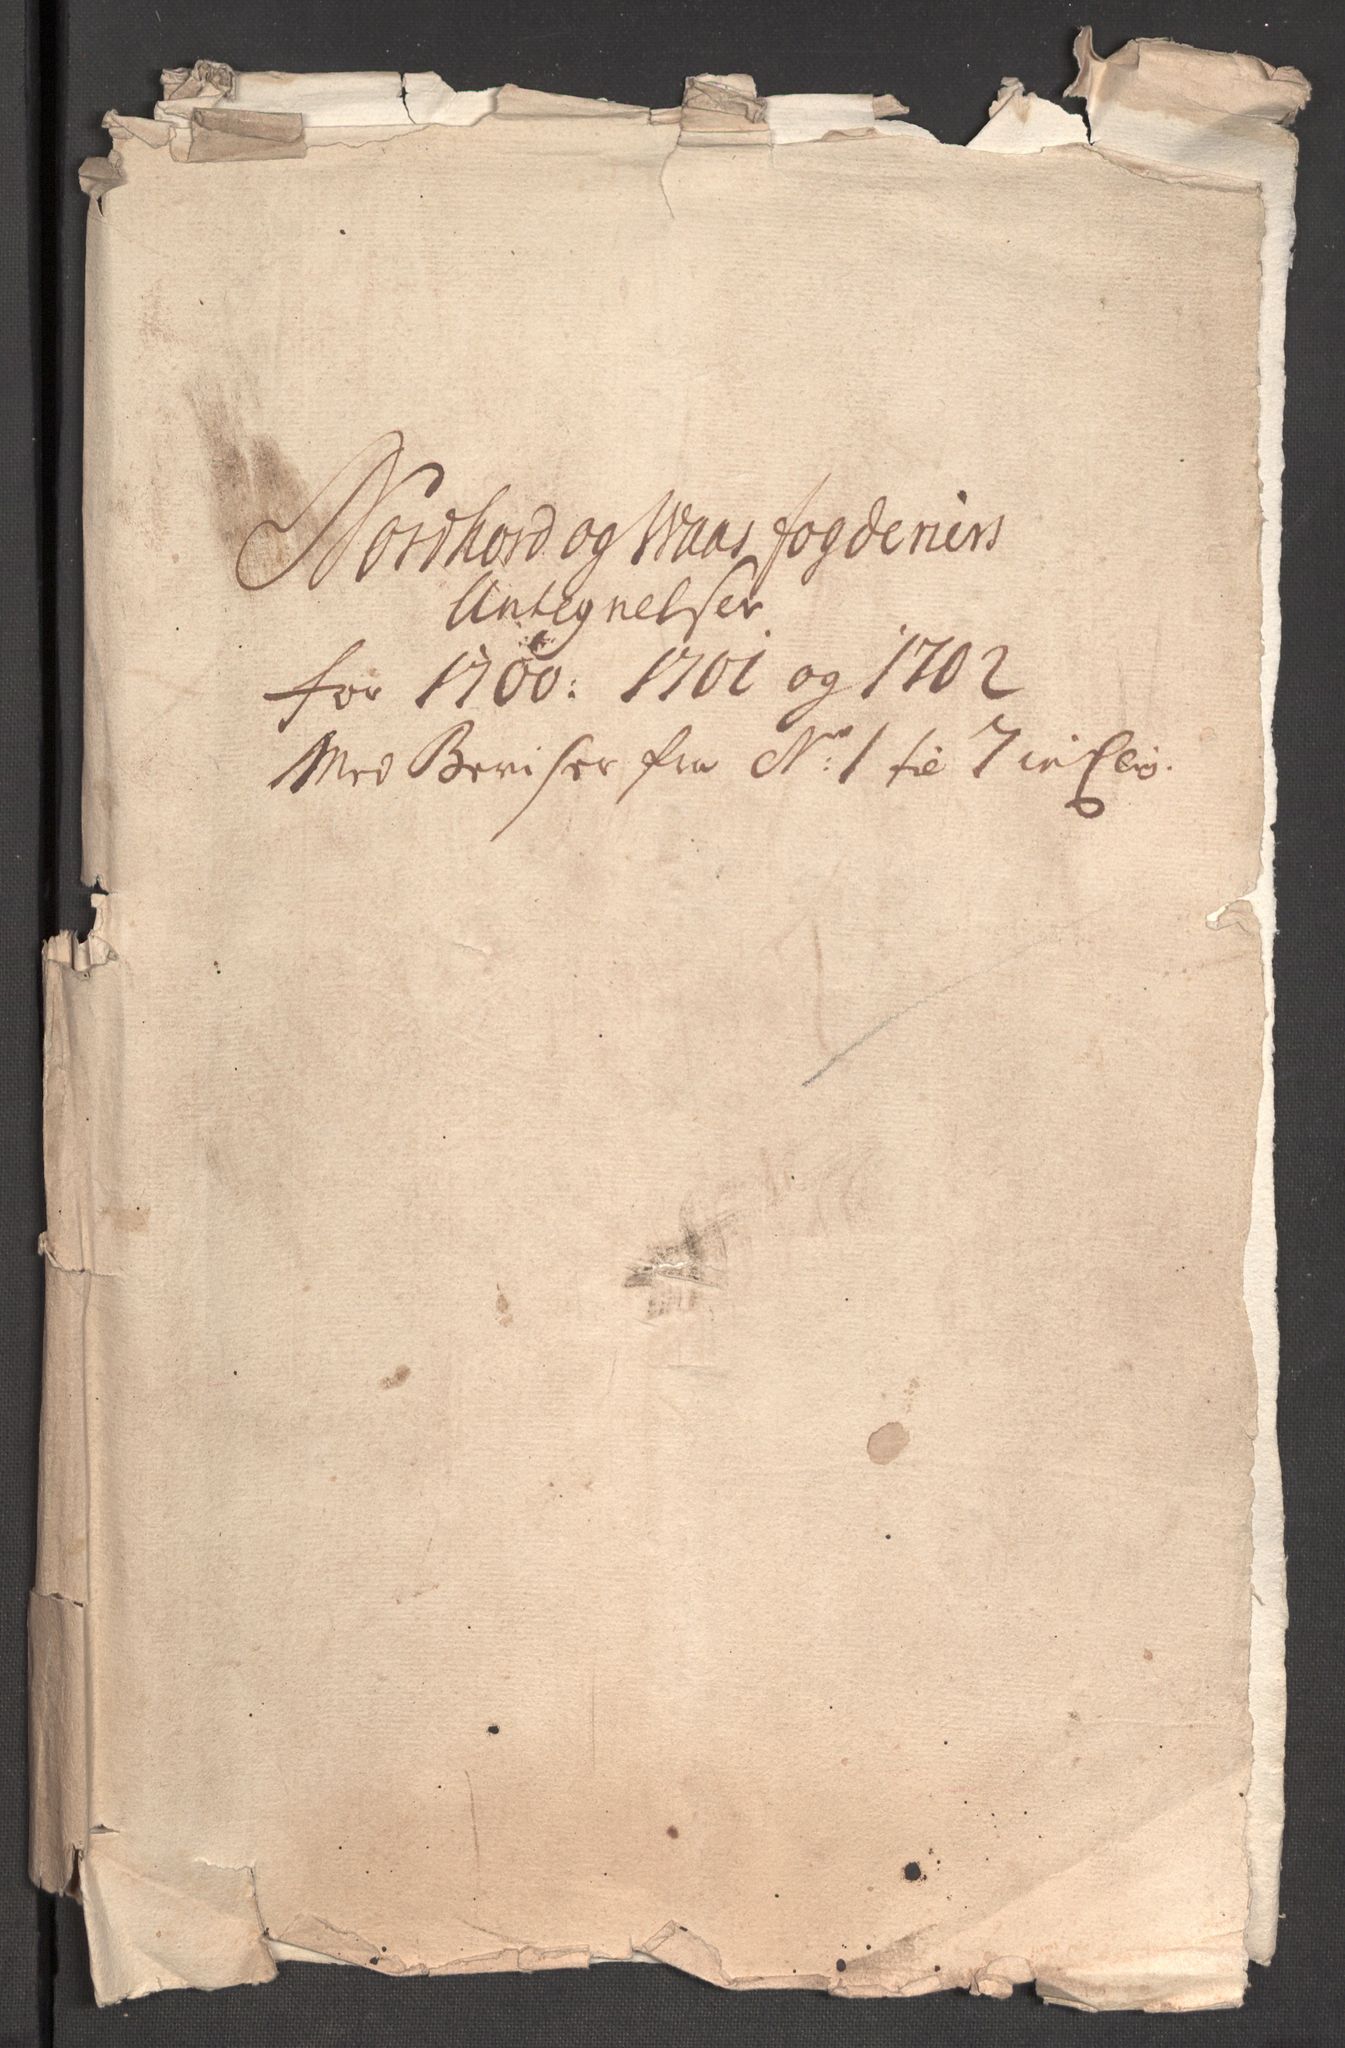 Nordhord og Waas fogderiers
Antegnelser
for 1700: 1701 og 1702
Med Beviser fra No: 1 til 7 incl: